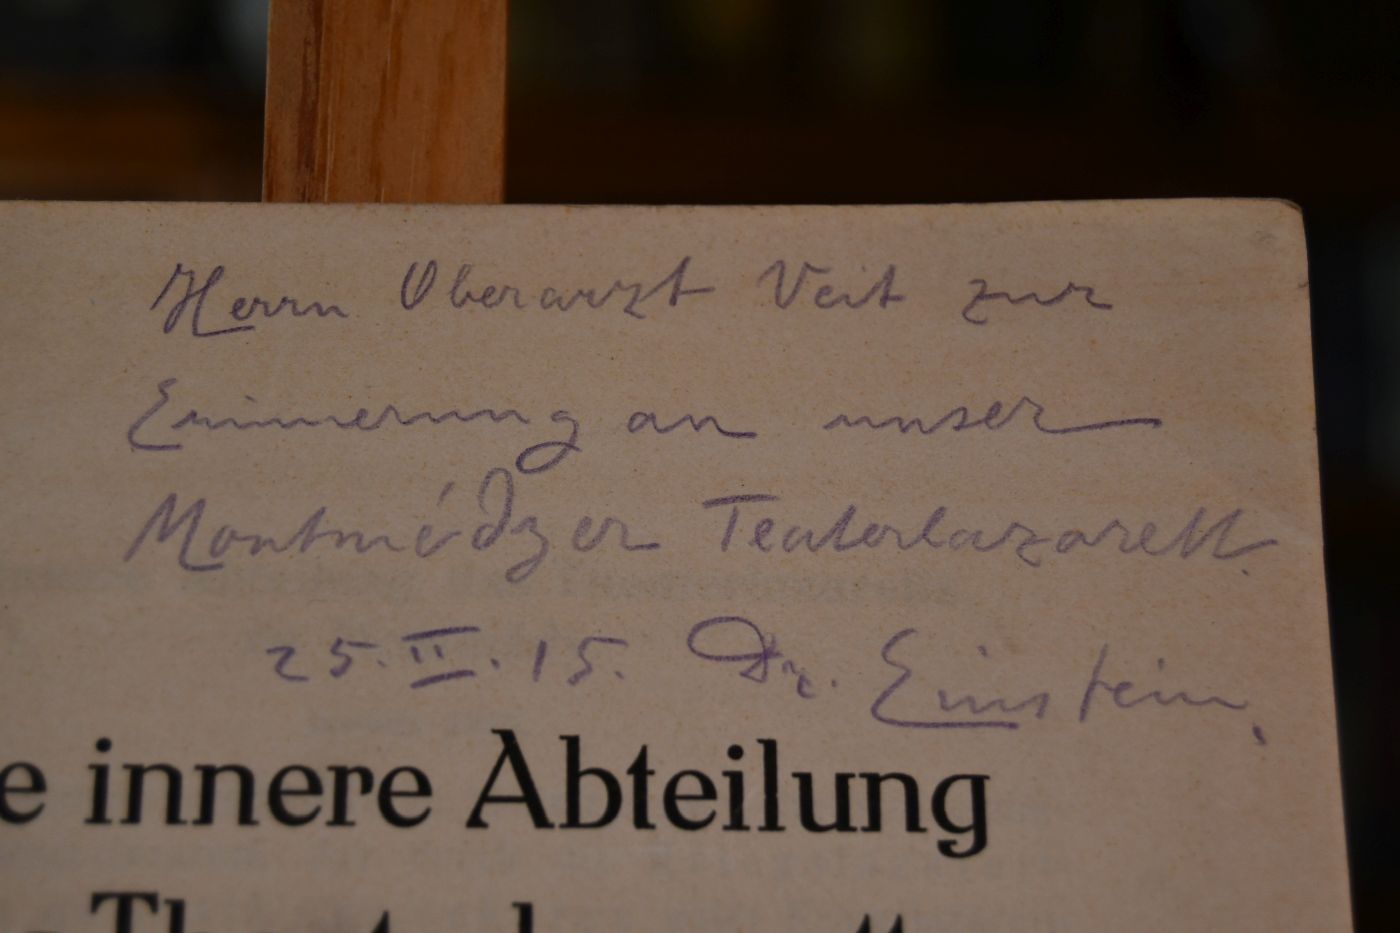 Herrn Oberarzt Veit zur
Erinnerung an unser
Montmédyer Teaterlazarett.
25.II.15. Dr. Einstein.
e innere Abteilung